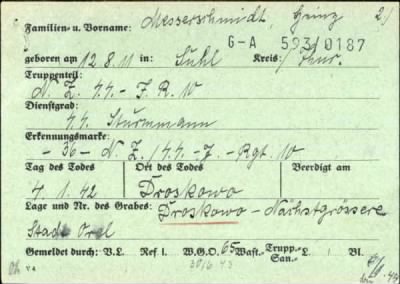 Familien- u. Vorname: Messerschmidt, Heinz 2)
G-A 593/0187
geboren am 12.8.11 in: Suhl Kreis: Thür.
Truppenteil:
N. Z. 44.-J.R. 10
Dienstgrad:
44 Sturmmann
Erkennungsmarke:
-36- N. Z. /44.-J.-Rgt. 10
Tag des Todes Ort des Todes Beerdigt am
4.1.42 Droskowo
Lage und Nr. des Grabes: Droskowo - Nächstgrössere
Stadt Orel
Gemeldet durch: V.L. Ref I. W.G.O. 65 Wast.- Trupp.- San.- L. Bl.
30/6.43
V 4